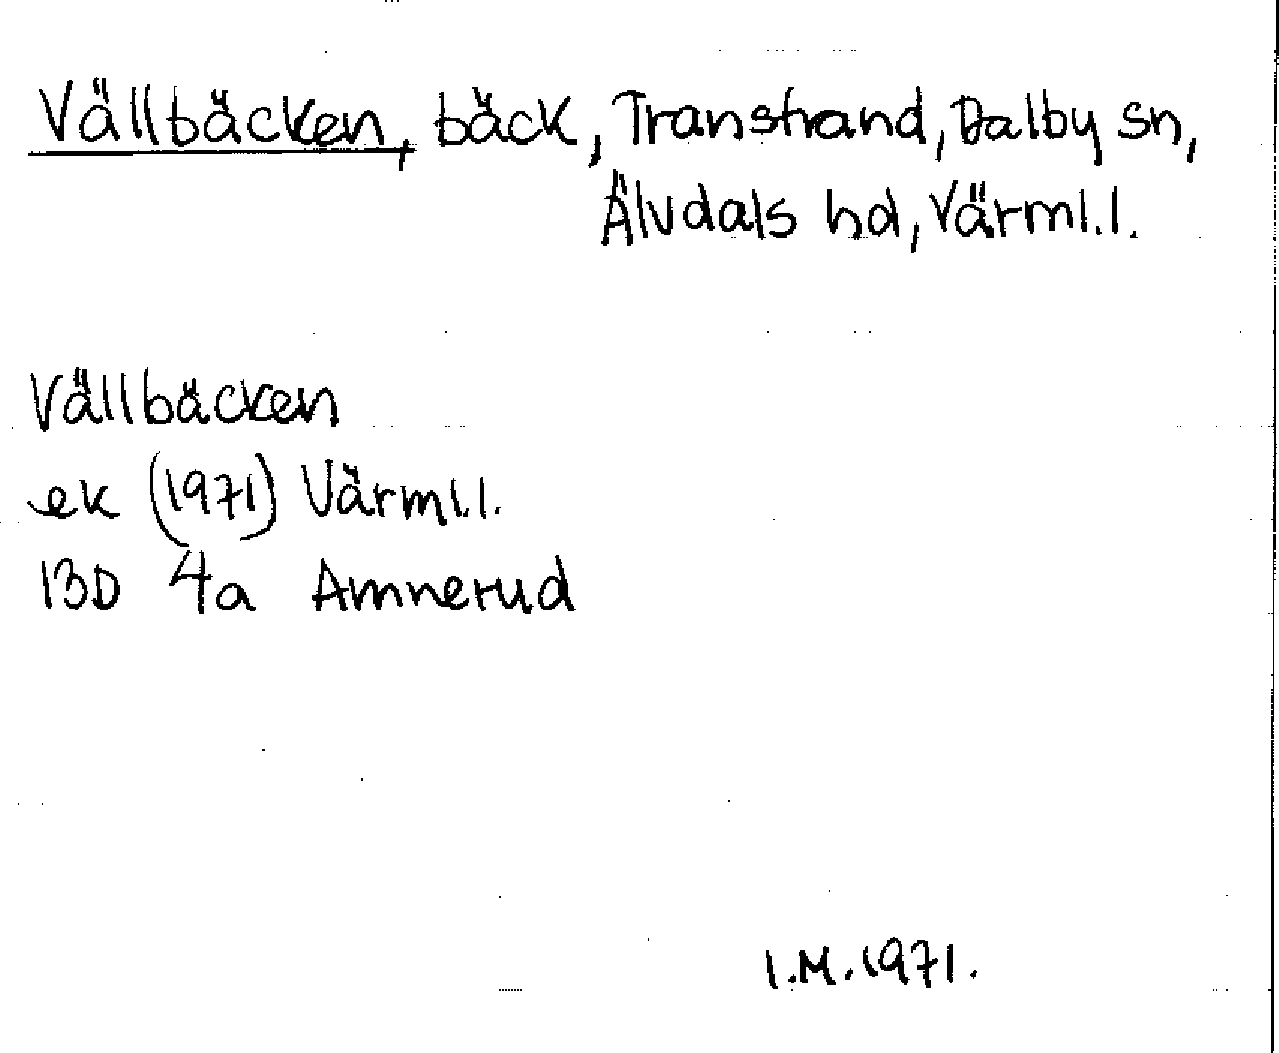 Vällbäcken, bäck, Transtrand, Dalby sn,
Älvdals hd, Värml.l.
Vällbäcken
ek (1971) Värml.l.
13D 4a Amnerud
I.M. 1971.